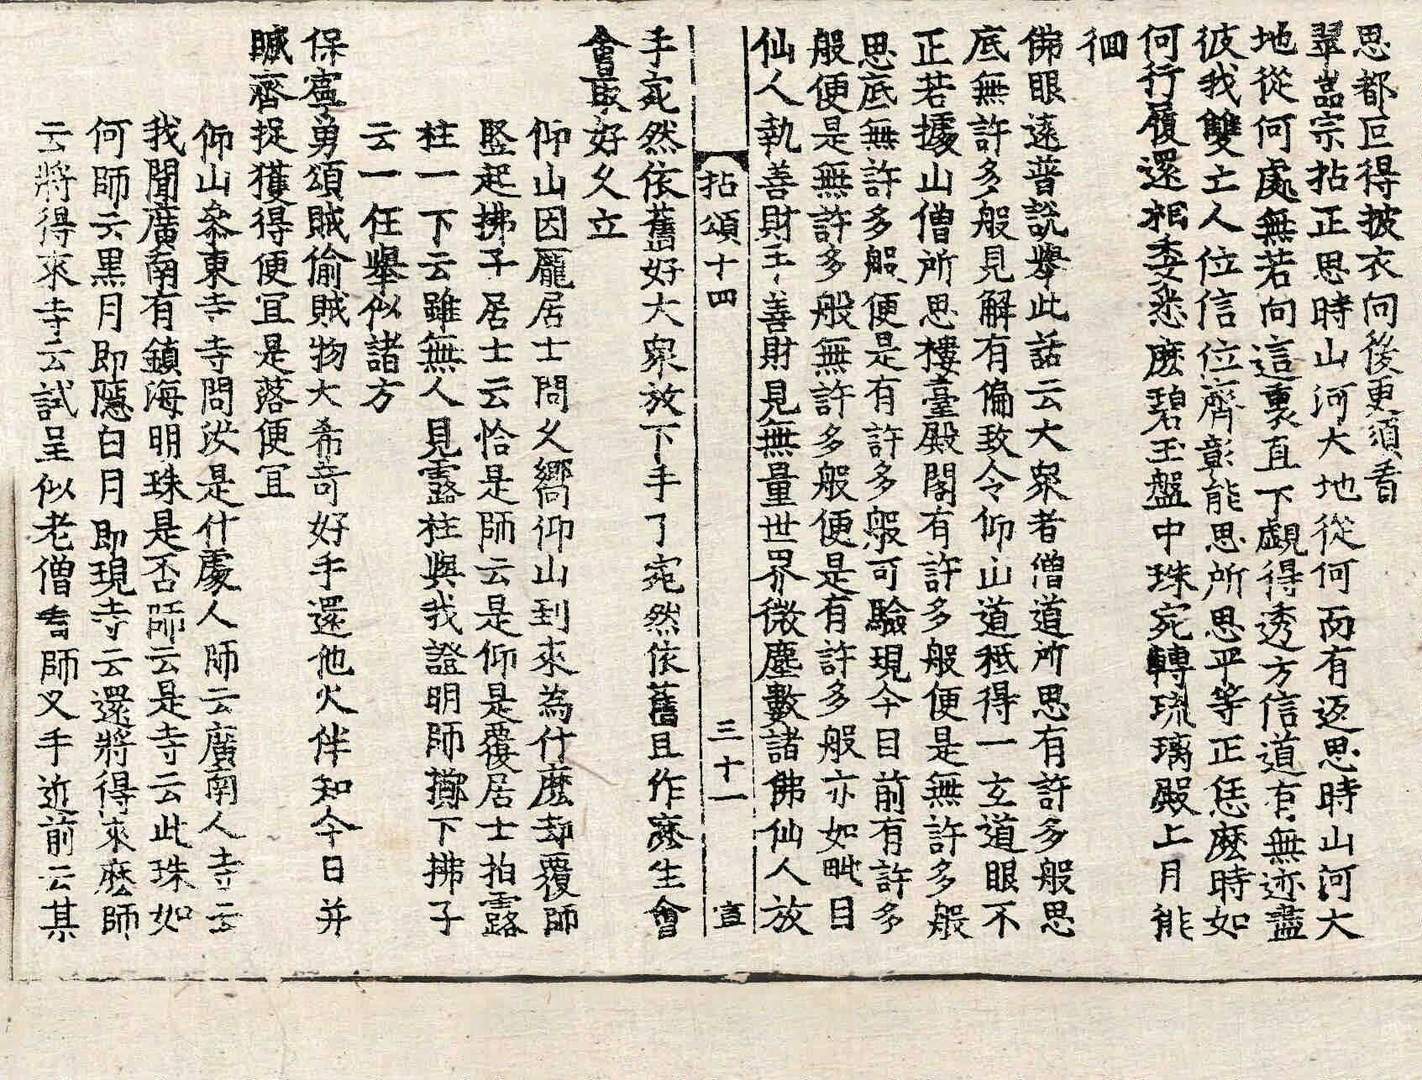 思都叵得披衣向後更須看
翠嵓宗拈正思時山河大地從何而有返思時山河大
地從何處無若向這裏直下覰得透方信道有無迹盡
彼我雙亡人位信位齊彰能思所思平等正恁麽時如
何行履還相委悉麽碧玉盤中珠宛轉琉璃殿上月徘
徊
佛眼遠普說擧此話云大衆者僧道所思有許多般思
底無許多般見解有偏致令仰山道秖得一玄道眼不
正若據山僧所思樓臺殿閣有許多般便是無許多般
思底無許多般便是有許多般可驗現今目前有許多
般便是無許多般無許多般便是有許多般亦如毗目
仙人執善財手善財見無量世界微塵數諸佛仙人放
拈頌十四 三十一 宣
手宛然依舊好大衆放下手了宛然依舊且作麽生會
會取好久立
仰山因龐居士問久嚮仰山到來為什麽却覆師
竪起拂子居士云恰是師云是仰是覆居士拍露
柱一下云雖無人見露柱與我證明師擲下拂子
云一任擧似諸方
保寧勇頌賊偷賊物大希奇好手還他火伴知今日并
贓齊捉獲得便宜是落便宜
仰山叅東寺寺問汝是什處人師云廣南人寺云
我聞廣南有鎮海明珠是否師云是寺云此珠如
何師云黑月即隱白月即現寺云還將得來麽師
云將得來寺云試呈似老僧看師叉手近前云某